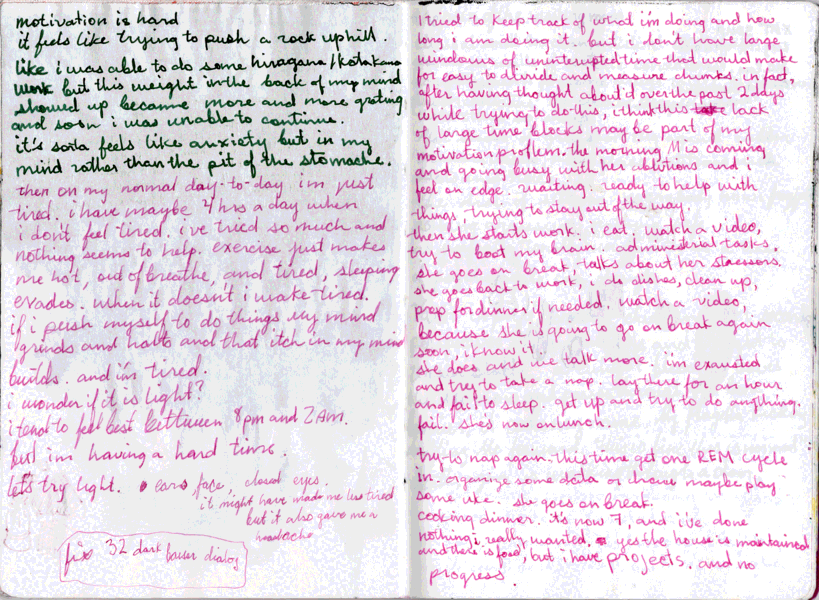 motivation is hard
it feels like trying to push a rock uphill.
like i was able to do some hiragana/katakana
work but this weight in the back of my mind
showed up became more and more grating
and soon i was unable to continue.
it's sorta feels like anxiety but in my
mind rather than the pit of the stomache.
then on my normal day-to-day. i'm just
tired. i have maybe 4 hrs a day when
i don't feel tired. i've tried so much and
nothing seems to help. exercise just makes
me hot, out of breathe, and tired, sleeping
evades. when it doesn't i wake tired.
if i push myself to do things my mind
grinds and halts and that itch in my mind
builds. and i'm tired.
i wonder if it is light?
i tend to feel best between 8pm and 2AM.
but i'm having a hard time.
let's try light. ears face, closed eyes.
it might have made me less tired
but it also gave me a
headache
fix 32 dark dialog
I tried to keep track of what i'm doing and how
long i am doing it. but i don't have large
windowns of uninterupted time that would make
for easy to divide and measure chunks. in fact,
after having thought about it over the past 2 days
while trying to do this, i think this take lack
of large time blocks may be part of my
motivation problem. the morning M is coming
and going busy with her ablutions and i
feel on edge. waiting. ready to help with
things. trying to stay out of the way.
then she starts work. i eat. watch a video,
try to boot my brain. administerial tasks.
she goes on break, talks about her stressors.
she goes back to work, i do dishes, clean up,
prep for dinner if needed. watch a video,
because she is going to go on break again
soon, i know it.
she does and we talk more. i'm exausted
and try to take a nap. lay there for an hour
and fail to sleep. get up and try to do anything.
fail. she's now on lunch.
try to nap again. this time get one REM cycle
in. organize some data or chores maybe play
some uke. she goes on break.
cooking dinner. it's now 7, and i've done
nothing i really wanted. yes the house is maintained
and there is food, but i have projects. and no
progress.